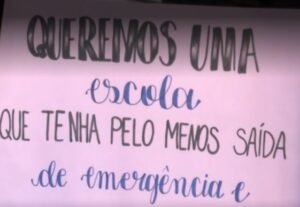 QUEREMOS UMA
escola
QUE TENHA PELO MENOS SAÍDA
de emergência e